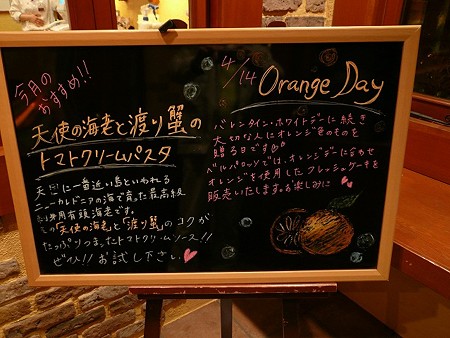 今月の
おすすめ!!
天使の海老と渡り蟹の
トマトクリームパスタ
天国に一番近い島といわれる
ニューカレドニアの海で育った最高級
用有頭海老です。
この「天使の海老」と「渡り蟹」のコクが
たっぷりつまったトマトクリームソース!!
ぜひ!!お試し下さい。
4/14 Orange Day
バレンタイン・ホワイトデーに続き
大切な人にオレンジ色のものを
贈る日です
ベルパロッソでは、オレンジデーに合わせ
オレンジを使用したフレッシュケーキを
販売いたします。お楽しみに